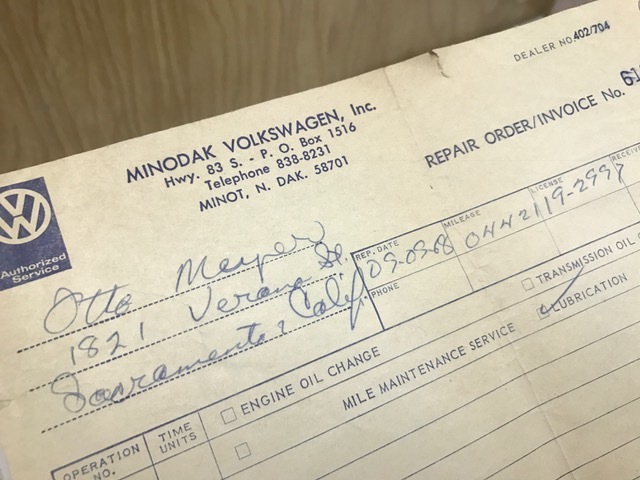 DEALER NO. 402/704
MINODAK VOLKSWAGEN, Inc.
Hwy. 83 S. - P. O. Box 1516
Telephone 838-8231
MINOT, N. DAK. 58701
REPAIR ORDER/INVOICE No.
VW
Authorized
Service
Otto Meyer
1821 Verano St.
Sacramento, Calif
REP. DATE
09-03-68
MILEAGE
04421
LICENSE
19-2997
RECEIVE
PHONE
ENGINE OIL CHANGE
TRANSMISSION OIL
MILE MAINTENANCE SERVICE
LUBRICATION
OPERATION
NO.
TIME
UNITS